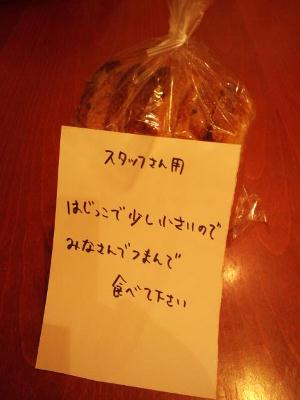 スタッフさん用
はじっこで少し小さいので
みなさんでつまんで
食べて下さい